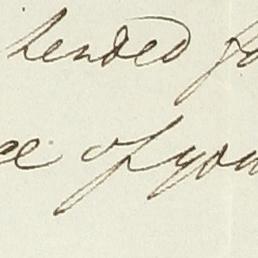 hended fo
ce of you